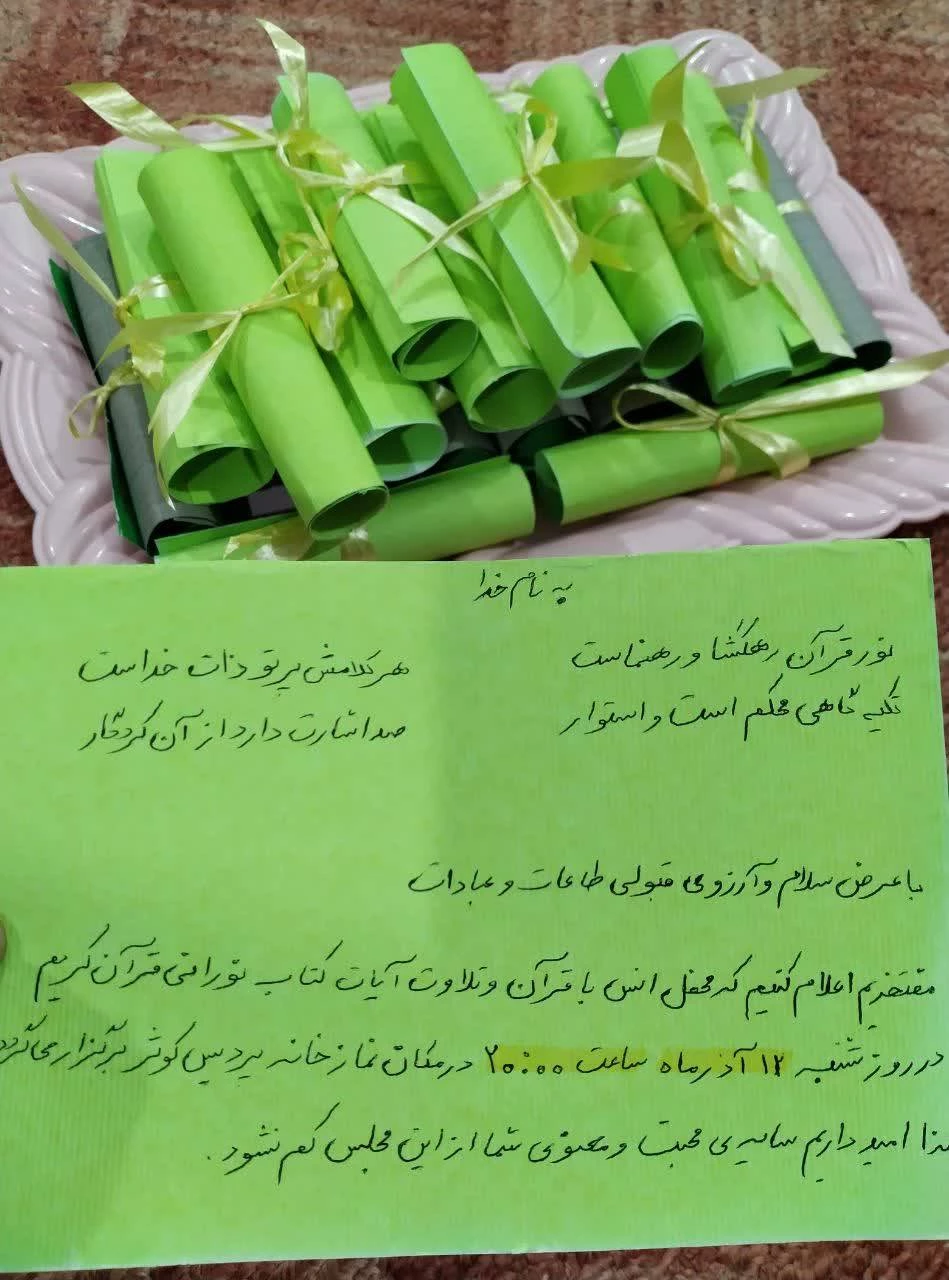 به نام خدا
نور قرآن رهگشا و رهنماست هر کلامش پرتو ذات خداست
تکیه گاهی محکم است و استوار صد اشارت دارد از آن کردگار
با عرض سلام و آرزوی قبولی طاعات و عبادات
مفتخریم اعلام کنیم که محفل انس با قرآن و تلاوت آیات کتاب نورانی قرآن کریم
در روز شنبه ۱۲ آذر ماه ساعت ۲۰:۰۰ در مکان نماز خانه پردیس کوثر برگزار می گردد
لذا امید داریم سایه ی محبت و معنوی شما از این مجلس کم نشود.